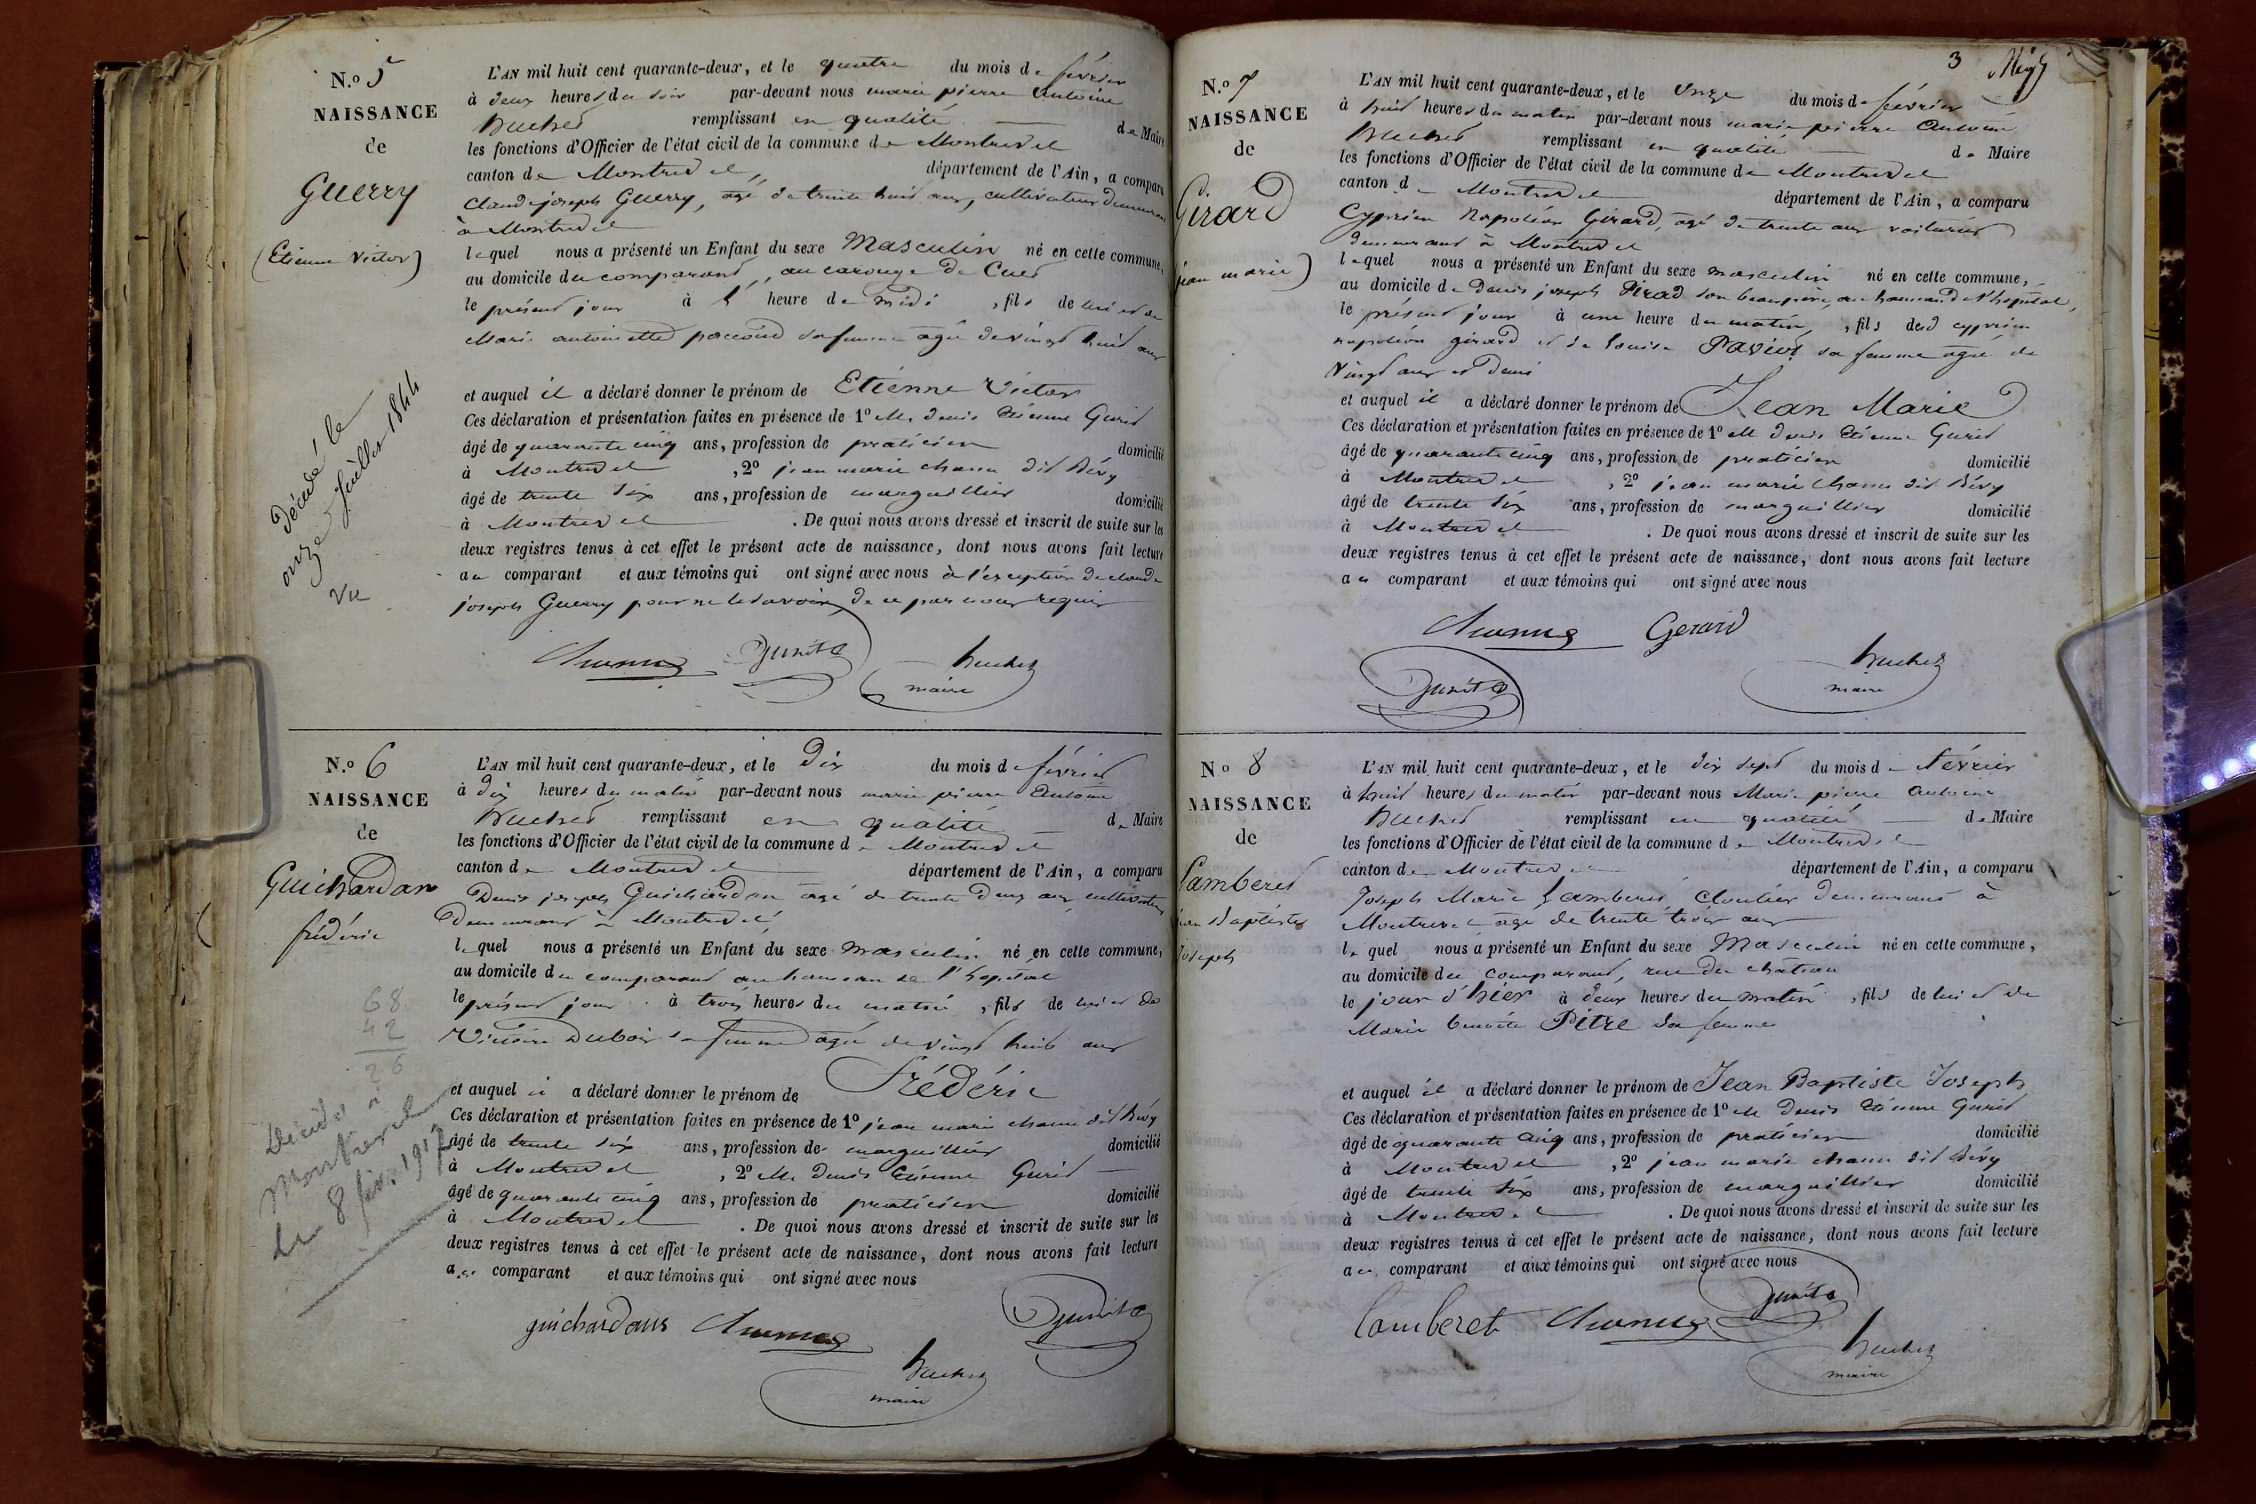 N.o 5
NAISSANCE
de
Guerry
(Etienne Victor)
décédé le
onze Juillet 1844
Vu
L'AN mil huit cent quarante-deux, et le quatre du mois de février
à deux heures du soir par-devant nous marie pierre Antoine
huchet remplissant en qualité de Maire
les fonctions d'Officier de l'état civil de la commune de Montrevel
canton de Montrevel, département de l'Ain, a comparu
Claude joseph Guerry, agé de trente huit ans, cultivateur demeurant
à Montrevel
lequel nous a présenté un Enfant du sexe Masculin né en cette commune,
au domicile du comparant, au carouge de Cuet
le présent jour à l' heure de midi, fils de lui et de
Marie antoinette paccoud sa femme agée de vingt huit ans
et auquel il a déclaré donner le prénom de Etienne Victor
Ces déclaration et présentation faites en présence de 1o M. denis Etienne Gurit
âgé de quarante cinq ans, profession de praticien domicilié
à Montrevel, 2o jean marie chanu dit Bévy
âgé de trente six ans, profession de marguillier domicilié
à Montrevel. De quoi nous avons dressé et inscrit de suite sur les
deux registres tenus à cet effet le présent acte de naissance, dont nous avons fait lecture
au comparant et aux témoins qui ont signé avec nous à l'exception de claude
joseph Guerry pour ne le savoir, de ce par nous requis
huchet
maire
N.o 6
NAISSANCE
de
Guichardan
frédéric
68
42
26
Décédé à
Montrevel
le 8 fév. 1917
L'AN mil huit cent quarante-deux, et le dix du mois de février
à dix heures du matin par-devant nous marie pierre Antoine
huchet remplissant en qualité de Maire
les fonctions d'Officier de l'état civil de la commune de Montrevel
canton de Montrevel département de l'Ain, a comparu
Denis joseph Guichardan agé de trente deux ans cultivateur
demeurant à Montrevel,
lequel nous a présenté un Enfant du sexe masculin né en cette commune,
au domicile du comparant au hameau de l'hopital
le présent jour à trois heures du matin, fils de lui et de
Victoire Dubois sa femme agée de vingt huit ans
et auquel il a déclaré donner le prénom de Frédéric
Ces déclaration et présentation faites en présence de 1o jean marie chanu dit Bévy
âgé de trente six ans, profession de marguillier domicilié
à Montrevel, 2o M. denis Etienne Gurit
âgé de quarante cinq ans, profession de praticien domicilié
à Montrevel. De quoi nous avons dressé et inscrit de suite sur les
deux registres tenus à cet effet le présent acte de naissance, dont nous avons fait lecture
au comparant et aux témoins qui ont signé avec nous
guichardans
huchet
maire
3
N.o 7
NAISSANCE
de
Girard
jean marie)
L'AN mil huit cent quarante-deux, et le onze du mois de février
à huit heures du matin par-devant nous marie pierre Antoine
huchet remplissant en qualité de Maire
les fonctions d'Officier de l'état civil de la commune de Montrevel
canton de Montrevel département de l'Ain, a comparu
Cyprien Napoléon Girard, agé de trente ans voiturier
demeurant à Montrevel
lequel nous a présenté un Enfant du sexe masculin né en cette commune,
au domicile de Denis joseph son beaupère, au hameau de l'hopital,
le présent jour à une heure du matin, fils de cyprien
napoléon girard et de Louise sa femme agée de
vingt ans et demi
et auquel il a déclaré donner le prénom de Jean Marie
Ces déclaration et présentation faites en présence de 1o M denis Etienne Gurit
âgé de quarante cinq ans, profession de praticien domicilié
à Montrevel, 2o jean marie chanu dit Bévy
âgé de trente six ans, profession de marguillier domicilié
à Montrevel. De quoi nous avons dressé et inscrit de suite sur les
deux registres tenus à cet effet le présent acte de naissance, dont nous avons fait lecture
au comparant et aux témoins qui ont signé avec nous
Gerard
huchet
maire
No 8
NAISSANCE
de
Lamberet
jean Baptiste
Joseph
L'AN mil huit cent quarante-deux, et le dix sept du mois de Février
à huit heures du matin par-devant nous Marie pierre antoine
huchet remplissant en qualité de Maire
les fonctions d'Officier de l'état civil de la commune de Montrevel
canton de Montrevel département de l'Ain, a comparu
Joseph Marie Lamberet, cloutier demeurant à
Montrevel agé de trente trois ans
lequel nous a présenté un Enfant du sexe Masculin né en cette commune,
au domicile du comparant, rue du château
le jour d'hier à deux heures du matin, fils de lui et de
Marie benoite Pitre sa femme
et auquel il a déclaré donner le prénom de Jean Baptiste Joseph
Ces déclaration et présentation faites en présence de 1o M Denis Etienne Gurit
âgé de quarante cinq ans, profession de praticien domicilié
à Montrevel, 2o jean marie chanu dit Bévy
âgé de trente six ans, profession de marguillier domicilié
à Montrevel. De quoi nous avons dressé et inscrit de suite sur les
deux registres tenus à cet effet le présent acte de naissance, dont nous avons fait lecture
au comparant et aux témoins qui ont signé avec nous
Lamberet
huchet
maire